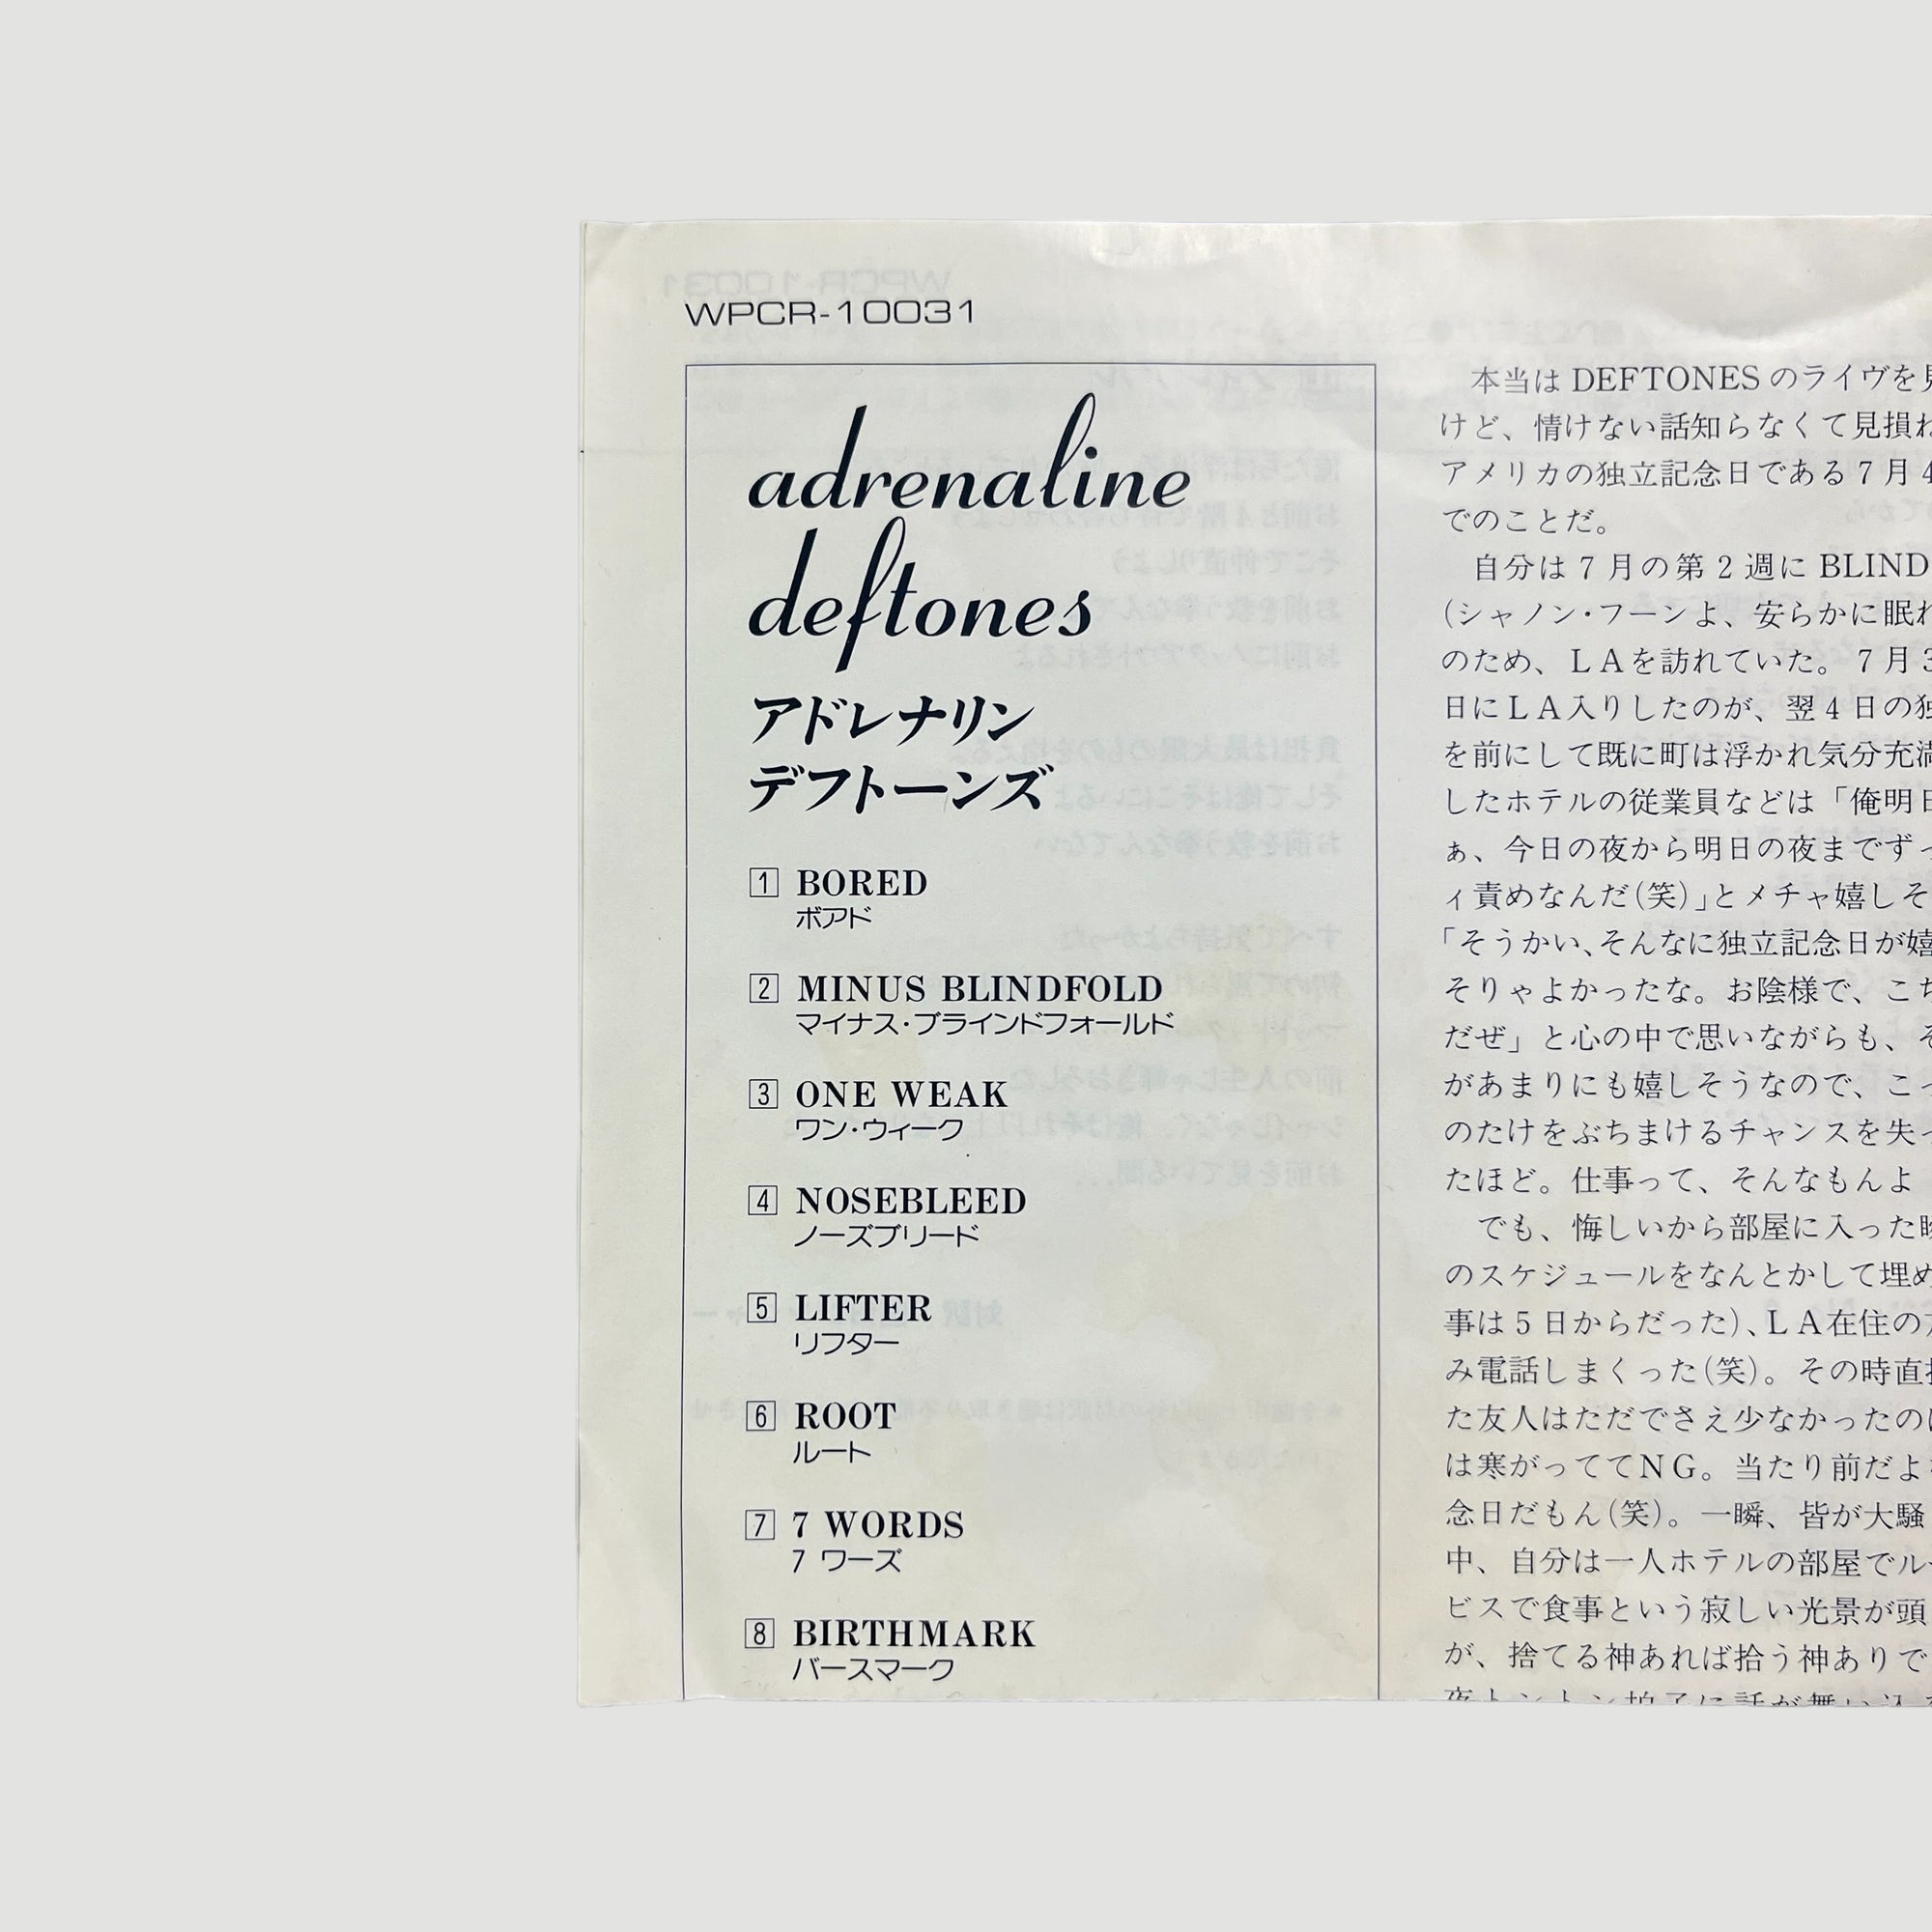 WPCR-10031
adrenaline
deftones
アドレナリン
デフトーンズ
1 BORED
ボアド
2 MINUS BLINDFOLD
マイナス・ブラインドフォールド
3 ONE WEAK
ワン・ウィーク
4 NOSEBLEED
ノーズブリード
5 LIFTER
リフター
6 ROOT
ルート
7 7 WORDS
7 ワーズ
8 BIRTHMARK
バースマーク
本当は DEFTONES のライヴを見
けど、情けない話知らなくて見損ね
アメリカの独立記念日である７月４
でのことだ。
自分は７月の第２週に BLIND
(シャノン・フーンよ、安らかに眠れ
のため、ＬＡを訪れていた。７月３
日にＬＡ入りしたのが、翌４日の独
を前にして既に町は浮かれ気分充満
したホテルの従業員などは「俺明日
ぁ、今日の夜から明日の夜までずっ
ィ責めなんだ(笑)」とメチャ嬉しそ
「そうかい、そんなに独立記念日が嬉
そりゃよかったな。お陰様で、こち
だぜ」と心の中で思いながらも、そ
があまりにも嬉しそうなので、こっ
のたけをぶちまけるチャンスを失っ
たほど。仕事って、そんなもんよ
でも、悔しいから部屋に入った瞬
のスケジュールをなんとかして埋め
事は５日からだった)、ＬＡ在住の
み電話しまくった(笑)。その時直接
た友人はただでさえ少なかったのに
は寒がっててＮＧ。当たり前だよ
念日だもん(笑)。一瞬、皆が大騒
中、自分は一人ホテルの部屋でルー
ビスで食事という寂しい光景が頭
が、捨てる神あれば拾う神ありで